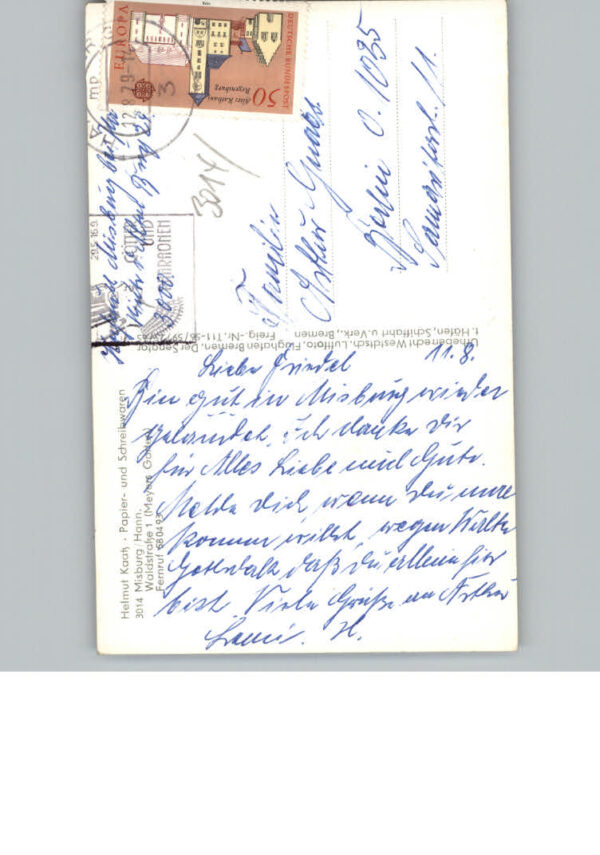 Liebe Friedel 11.8.
Bin gut in Misburg wieder
gelandet, ich danke dir
für Alles Liebe und Gute.
Melde dich, wenn du mal
kommen willst, wegen
daß du allein hier
bist. Viele Grüße an Arthur
H.
Familie
Arthur
Berlin O. 1035
11.
3014
DEUTSCHE BUNDESPOST
EUROPA
50
Altes Rathaus
Regensburg
GÖTTER
UND
PHARAONEN
Helmut Kaatz · Papier- und Schreibwaren
3014 Misburg/Hann.
Waldstraße 1 (Meyers Garten)
Fernruf 580493
Urheberrecht Westdtsch. Luftfoto, Flughafen Bremen, Der Senator
f. Häfen, Schiffahrt u. Verk., Bremen Freig.-Nr.